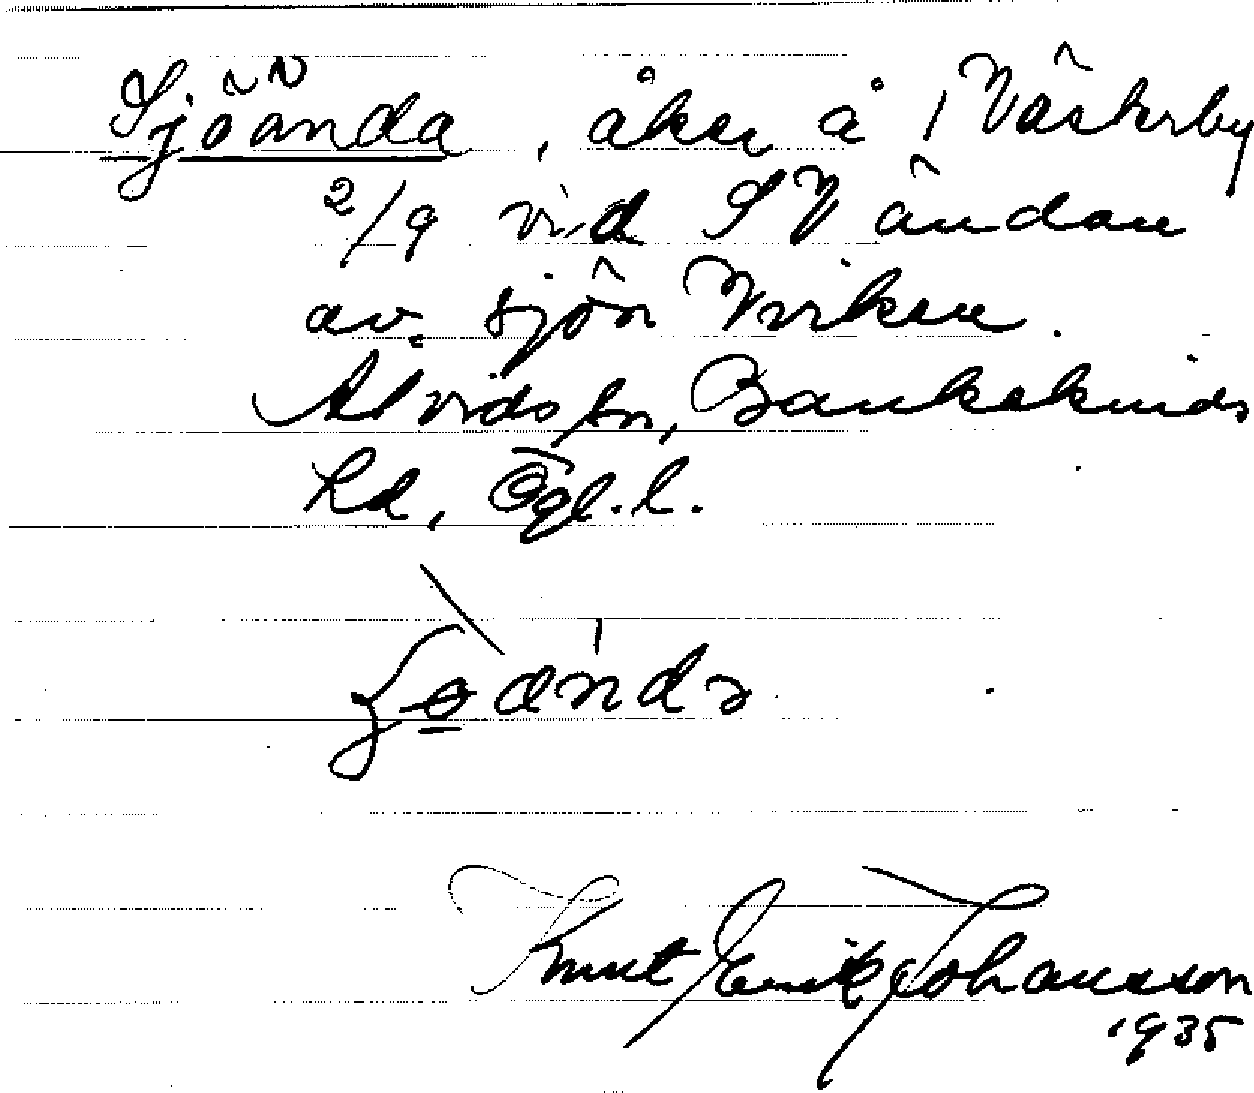 Sjöända, åker å 1 Västerby
2/9 vid SV ändan
av sjön Virken.
Alvids sn, Bankekinds
hd, Ögl. l.
Knut Erik Johansson
1935